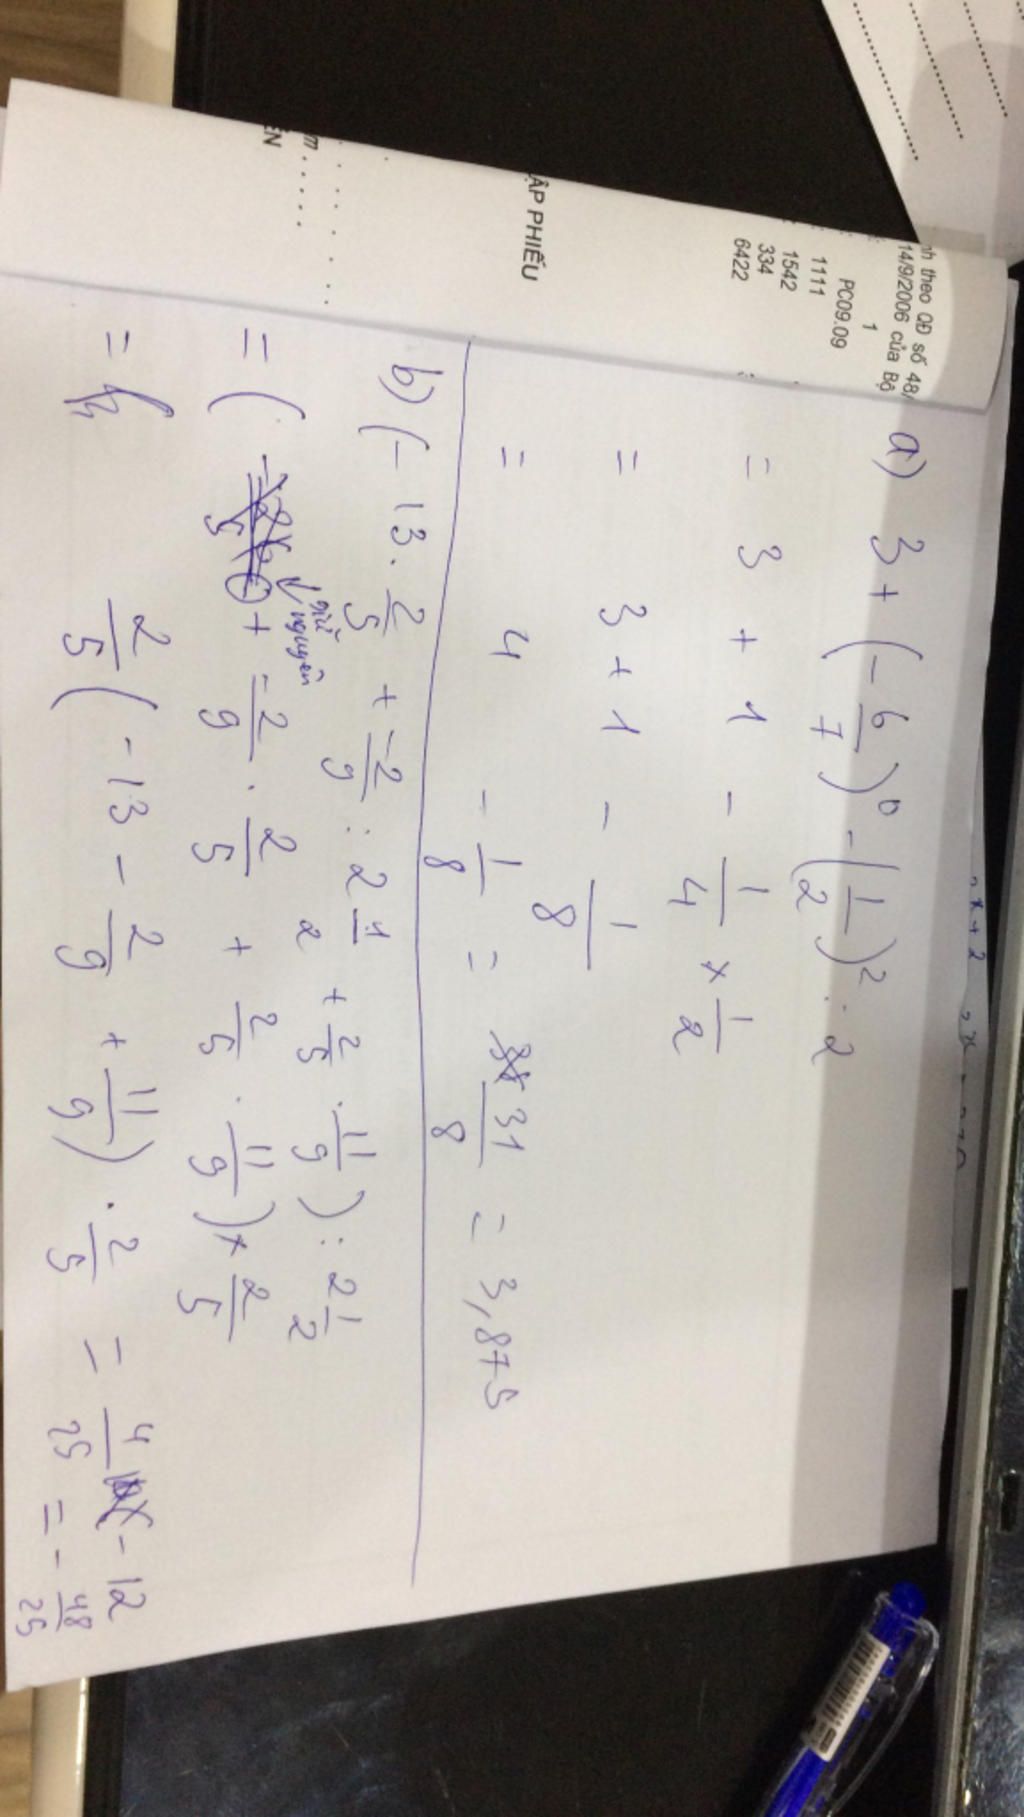 nh theo QĐ số 48/
14/9/2006 của Bộ
1
PC09.09
1111
1542
334
6422
ẬP PHIẾU
a) 3 + (-6/7)^0 - (1/2)^2 : 2
= 3 + 1 - 1/4 × 1/2
= 3 + 1 - 1/8
= 4 - 1/8 = 31/8 = 3,875
b) (-13 . 2/5 + -2/9 : 2 1/2 + 2/5 . 11/9) : 2 1/2
giữ nguyên
= ( + -2/9 . 2/5 + 2/5 . 11/9) × 2/5
= 2/5 (-13 - 2/9 + 11/9) . 2/5 = 4/25 × -12
= -48/25